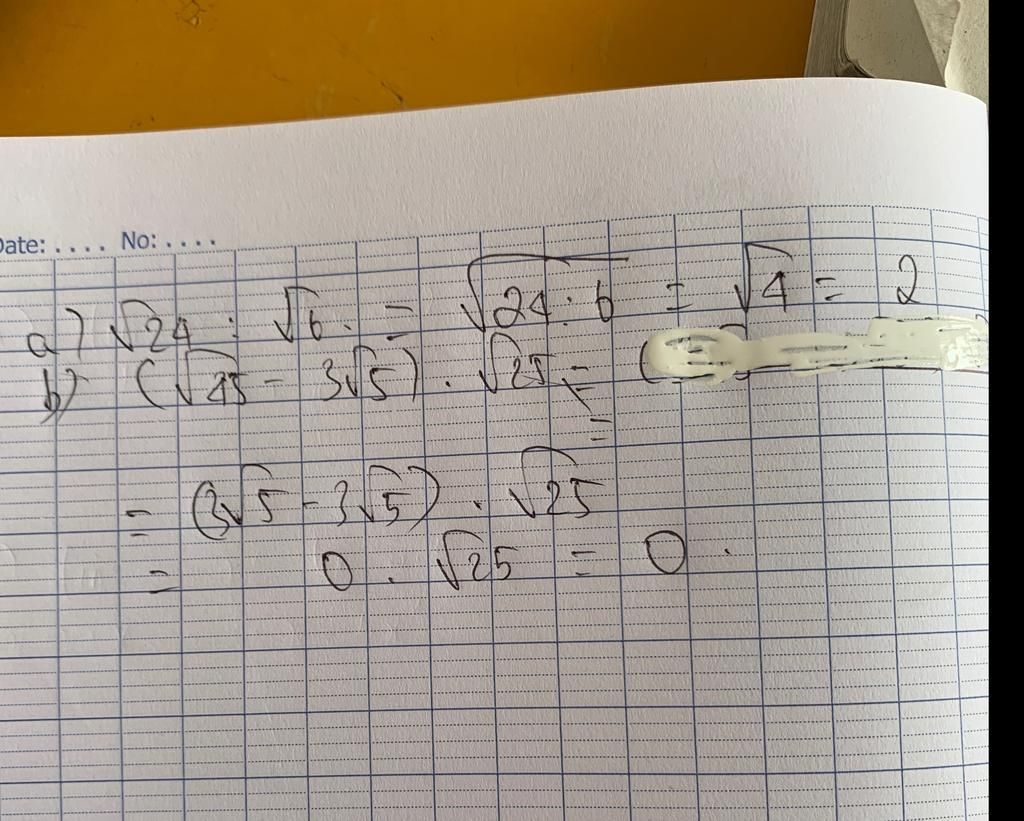 Date: .... No: ....
a) √24 : √6. = √24:6 = √4 = 2
b) (√45 - 3√5) . √25 = (
=
= (3√5 - 3√5) . √25
= 0 . √25 = 0 .